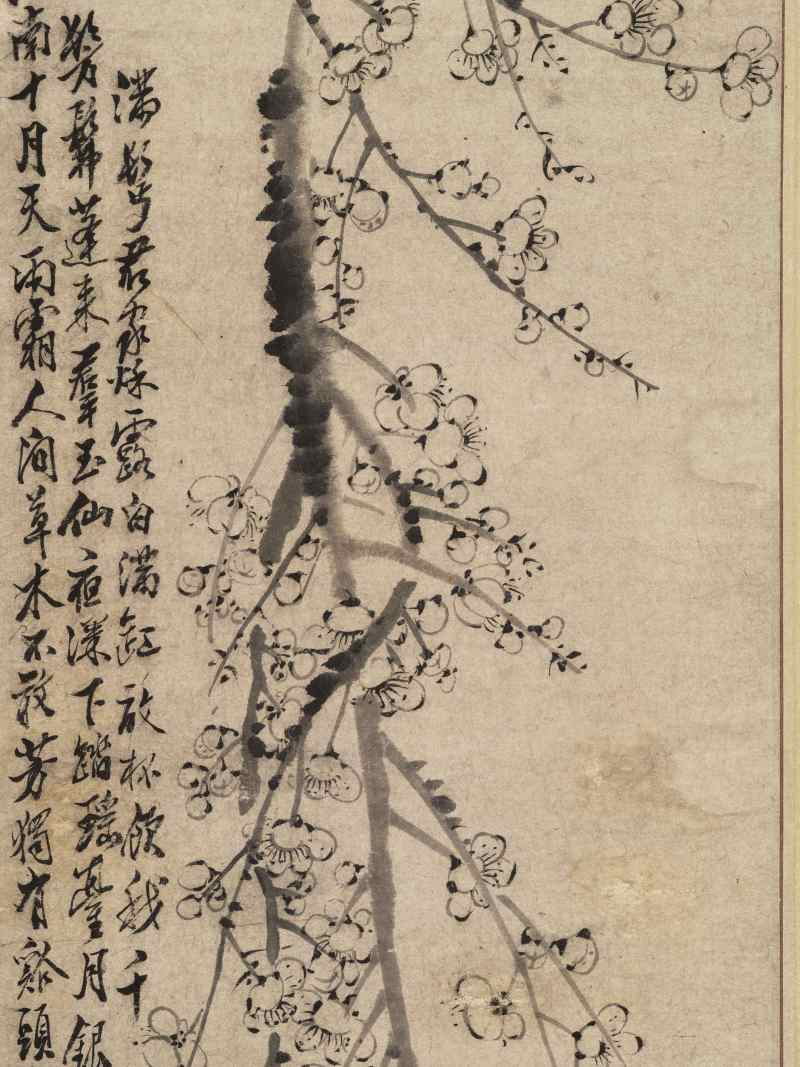 南十月天雨霜人間草木不敢芳獨有谿頭
髣髴蓬来羣玉仙夜深下踏瑤臺月銀
滿鬢君家秋露白滿缸放杯飲我千